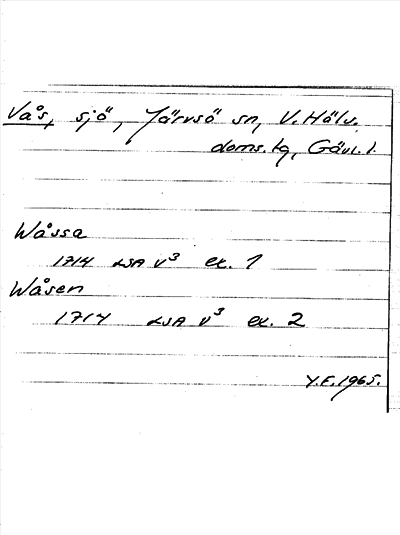 Vås, sjö, Järvsö sn, V. Häls.
doms.tg, Gävl. l.
Wåssa
1714 LSA V³ ex. 1
Wåsen
1714 LSA V³ ex. 2
Y.F. 1965.